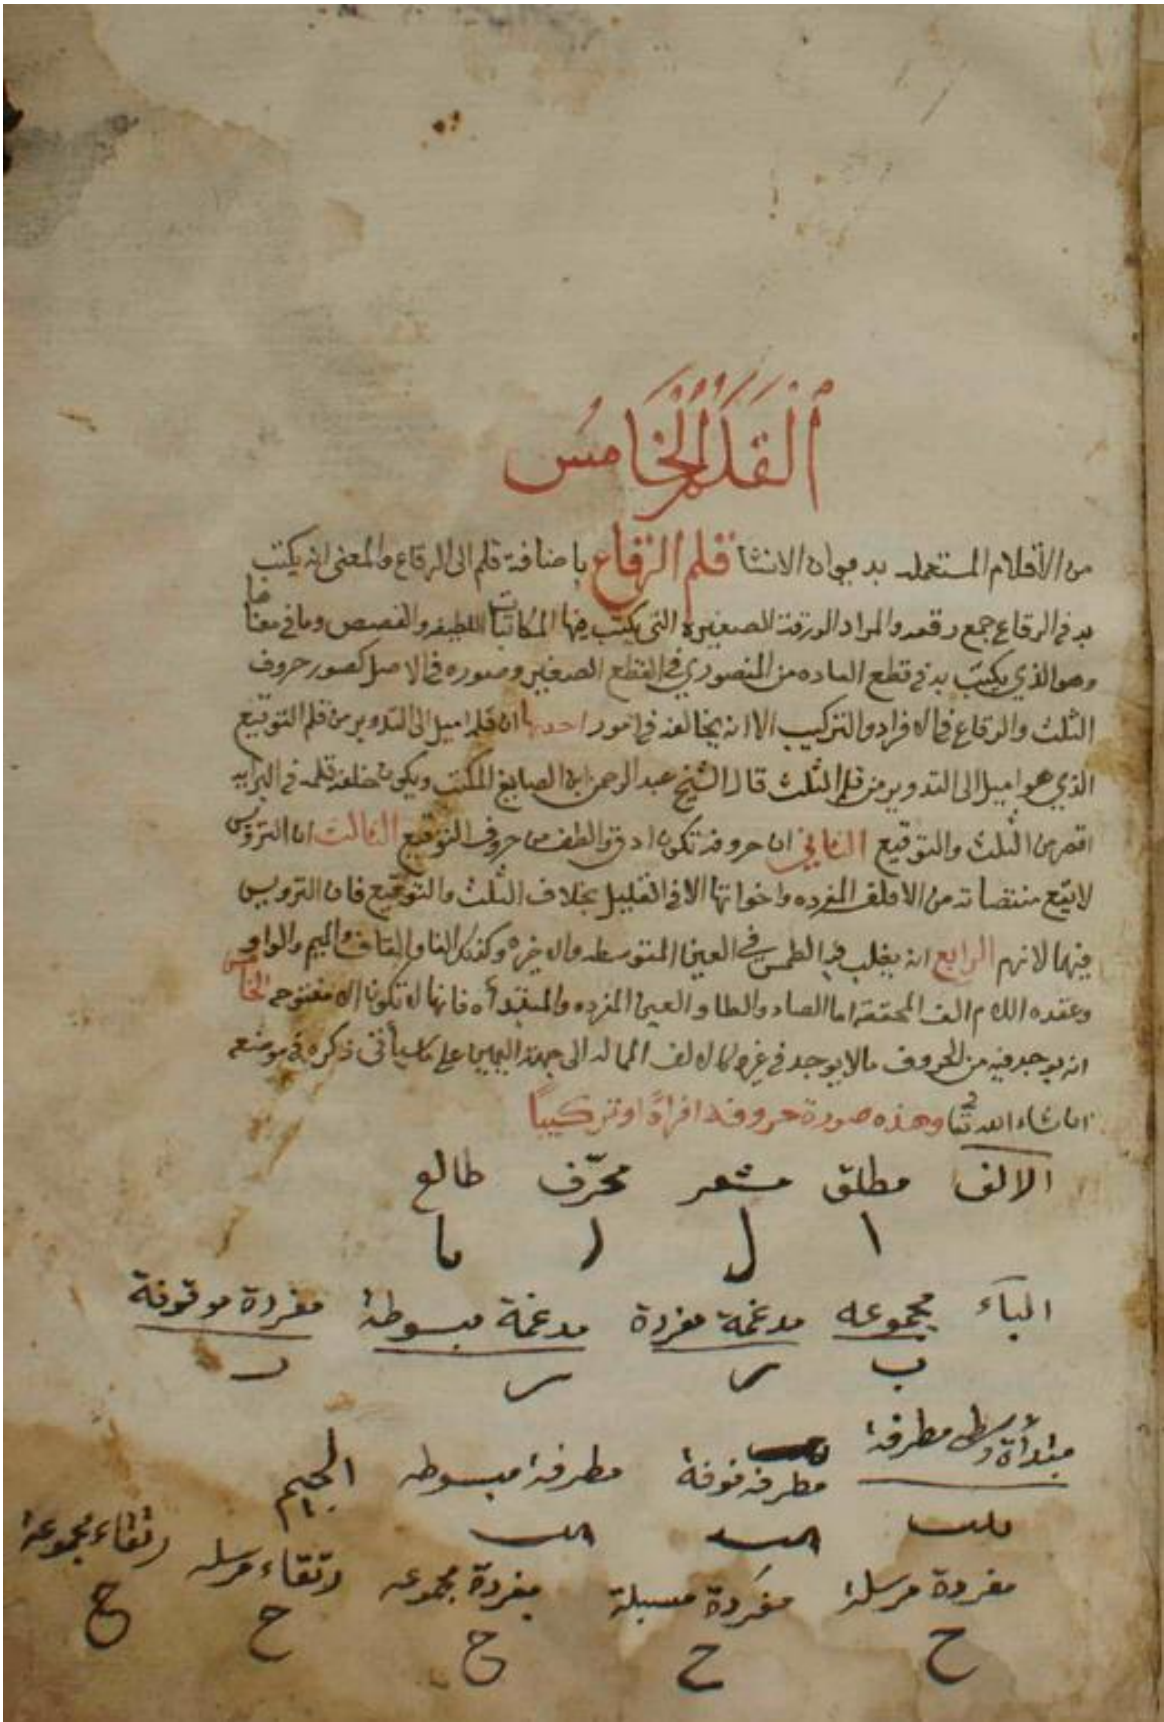 القلم الخامس
من الأقلام المستعمله بديوان الانشا قلم الرقاع باضافة قلم الى الرقاع والمعنى انه يكتب
به في الرقاع جمع رقعه والمراد الورقة الصغيره التى يكتب فيها المكاتبات اللطيفه والقصص وما في معناها
وهو الذي يكتب به في قطع العاده من المنصوري في القطع الصغير وصوره في الاصل كصور حروف
الثلث والرقاع في الافراد والتركيب الا انه يخالفه في امور احدها ان قلمه اميل الى التدوير من قلم التوقيع
الذي هو اميل الى التدوير من قلم الثلث قال الشيخ عبد الرحمن ابن الصايغ المكتب ويكون جلفة قلمه في البرايه
اقصر من الثلث والتوقيع الثاني ان حروفه تكون ادق والطف من حروف التوقيع الثالث ان الترويس
لا يقع منتصاته من الالف المفرده واخواتها الا في القليل بخلاف الثلث والتوقيع فان الترويس
فيهما لازم الرابع انه يغلب فيه الطمس في العين المتوسطه والاخيره وكذلك الفا والقاف والميم والواو
وعقده اللام الف المحققه اما الصاد والطا والعين المفرده والمبتدأه فانها لا تكون الا مفتوحه الخامس
انه يوجد فيه من الحروف مالا يوجد في غيره كالالف الممالة الى جهة اليمين على ما سيأتى ذكره في موضعه
ان شاء الله تعا وهذه صورة حروفه افرادًا وتركيبًا
الالف مطلق مشعر محرّف طالع
ا ل ا ما
الباء مجموعه مدغمة مفردة مدغمة مبسوطة مفردة موقوفة
ب
مبتدأة وسطى مطرفة مطرفه موقوفة مطرفة مبسوطه الجيم
مفردة مرسلة مفردة مسبلة مفردة مجموعه رتقاء مرسله رتقاء مجموعة
ح ح ح ح ح